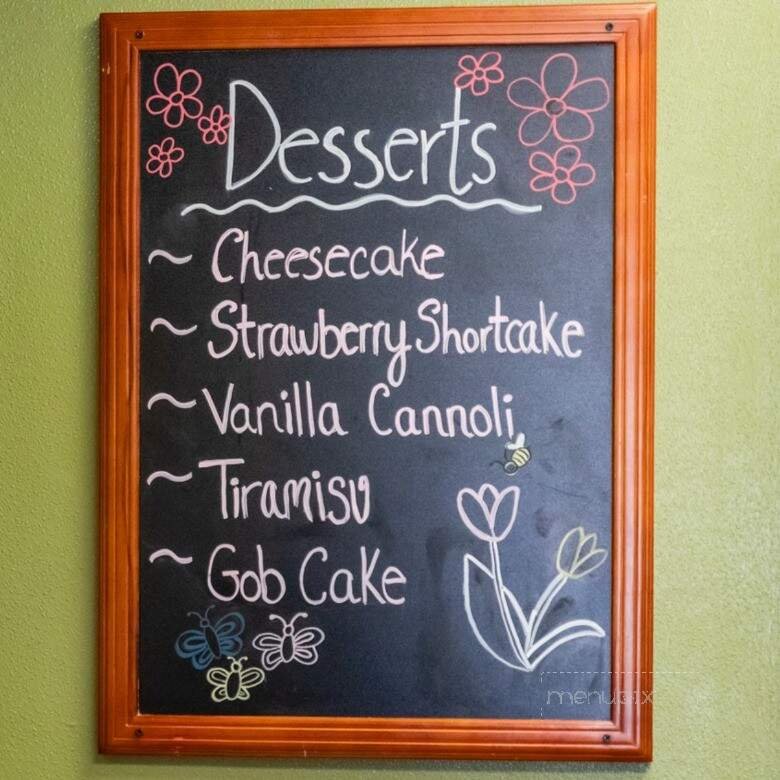 Desserts
~ Cheesecake
~ Strawberry Shortcake
~ Vanilla Cannoli
~ Tiramisu
~ Gob Cake
menupix